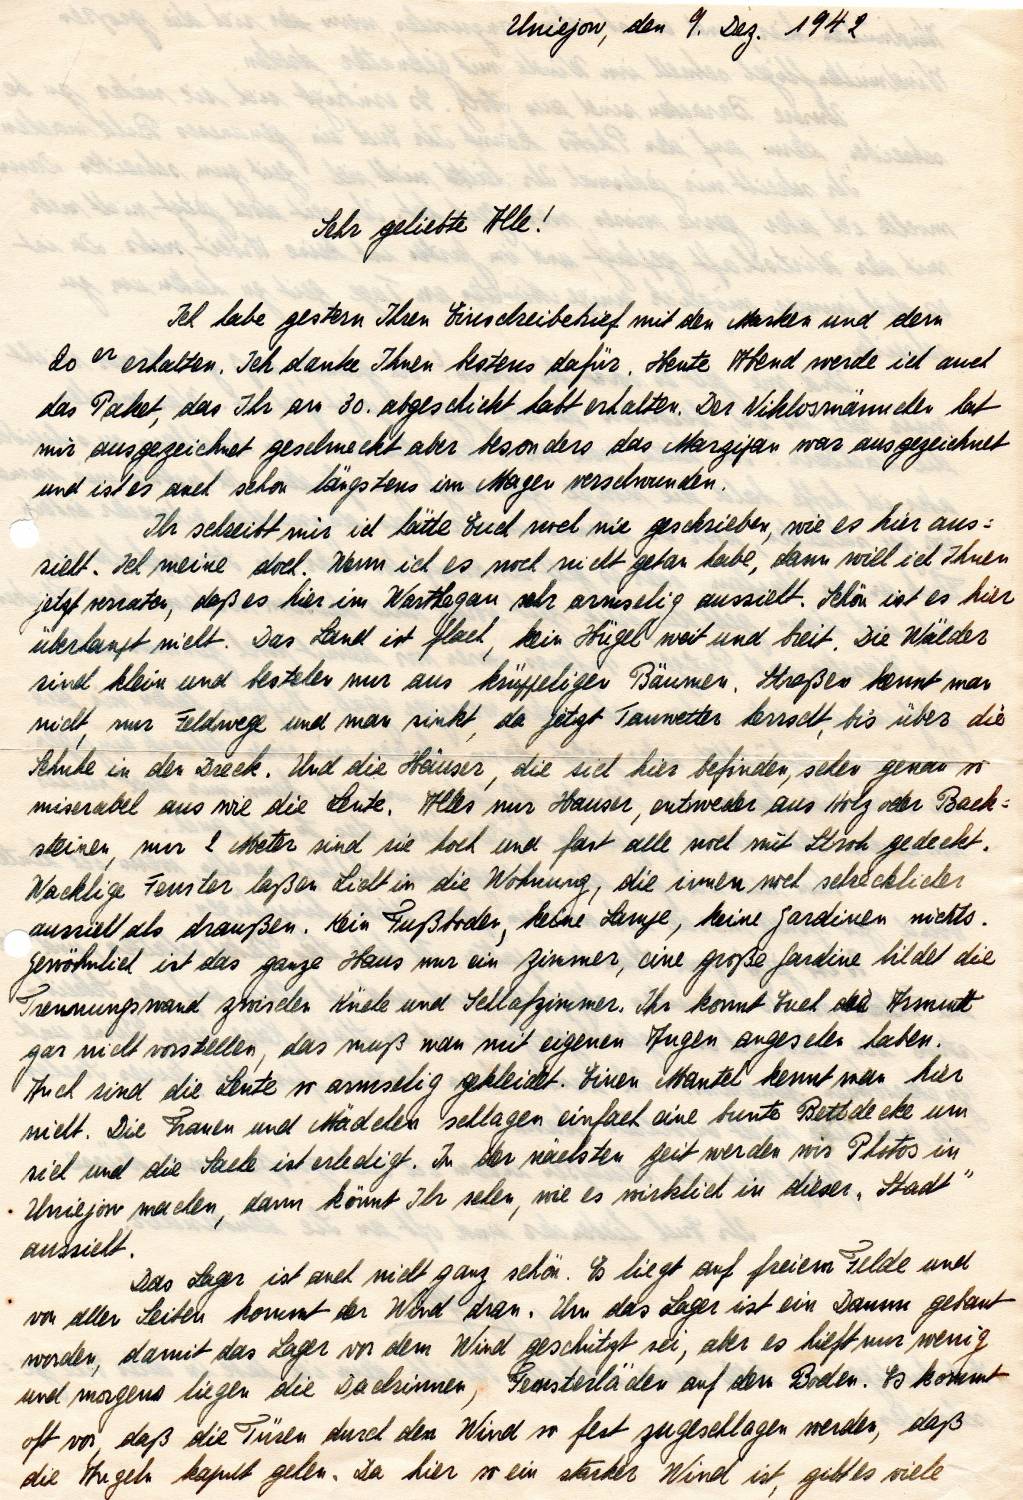 Uniejow, den 9. Dez. 1942
Sehr geliebte Alle!
Ich habe gestern Ihren Einschreibebrief mit den Marken und dem
20 er erhalten. Ich danke Ihnen bestens dafür. Heute Abend werde ich auch
das Paket, das Ihr am 30. abgeschickt habt erhalten. Der Niklosmännchen hat
mir ausgezeichnet geschmeckt aber besonders das Marzipan war ausgezeichnet
und ist es auch schon längstens im Magen verschwunden.
Ihr schreibt mir ich hätte Euch noch nie geschrieben, wie es hier aus=
sieht. Ich meine doch. Wenn ich es noch nicht getan habe, dann will ich Ihnen
jetzt verraten, daß es hier im Warthegau sehr armselig aussieht. Schön ist es hier
überhaupt nicht. Das Land ist flach, kein Hügel weit und breit. Die Wälder
sind klein und bestehen nur aus krüppeligen Bäumen. Straßen kennt man
nicht, nur Feldwege und man sinkt, da jetzt Tauwetter herrscht, bis über die
Schuhe in den Dreck. Und die Häuser, die sich hier befinden, sehen genau so
miserabel aus wie die Leute. Alles nur Hauser, entweder aus Holz oder Back=
steinen, nur 2 Meter sind sie hoch und fast alle noch mit Stroh gedeckt.
Wacklige Fenster laßen Licht in die Wohnung, die innen noch schrecklicher
aussieht als draußen. Kein Fußboden, keine Lampe, keine Gardinen nichts.
Gewöhnlich ist das ganze Haus nur ein Zimmer, eine große Gardine bildet die
Trennungswand zwischen Küche und Schlafzimmer. Ihr konnt Euch die Armutt
gar nicht vorstellen, das muß man mit eigenen Augen angesehen haben.
Auch sind die Leute so armselig gekleidet. Einen Mantel kennt man hier
nicht. Die Frauen und Mädchen schlagen einfach eine bunte Bettdecke um
sich und die Sache ist erledigt. In der nächsten Zeit werden wir Photos in
Uniejow machen, dann könnt Ihr sehen, wie es wirklich in dieser „Stadt"
aussieht.
Das Lager ist auch nicht ganz schön. Es liegt auf freiem Felde und
von allen Seiten kommt der Wind dran. Um das Lager ist ein Damm gebaut
worden, damit das Lager vor dem Wind geschützt sei, aber es hilft nur wenig
und morgens liegen die Dachrinnen, Fensterläden auf dem Boden. Es kommt
oft vor, daß die Türen durch den Wind so fest zugeschlagen werden, daß
die Angeln kaputt gehen. Da hier so ein starker Wind ist, gibt es viele